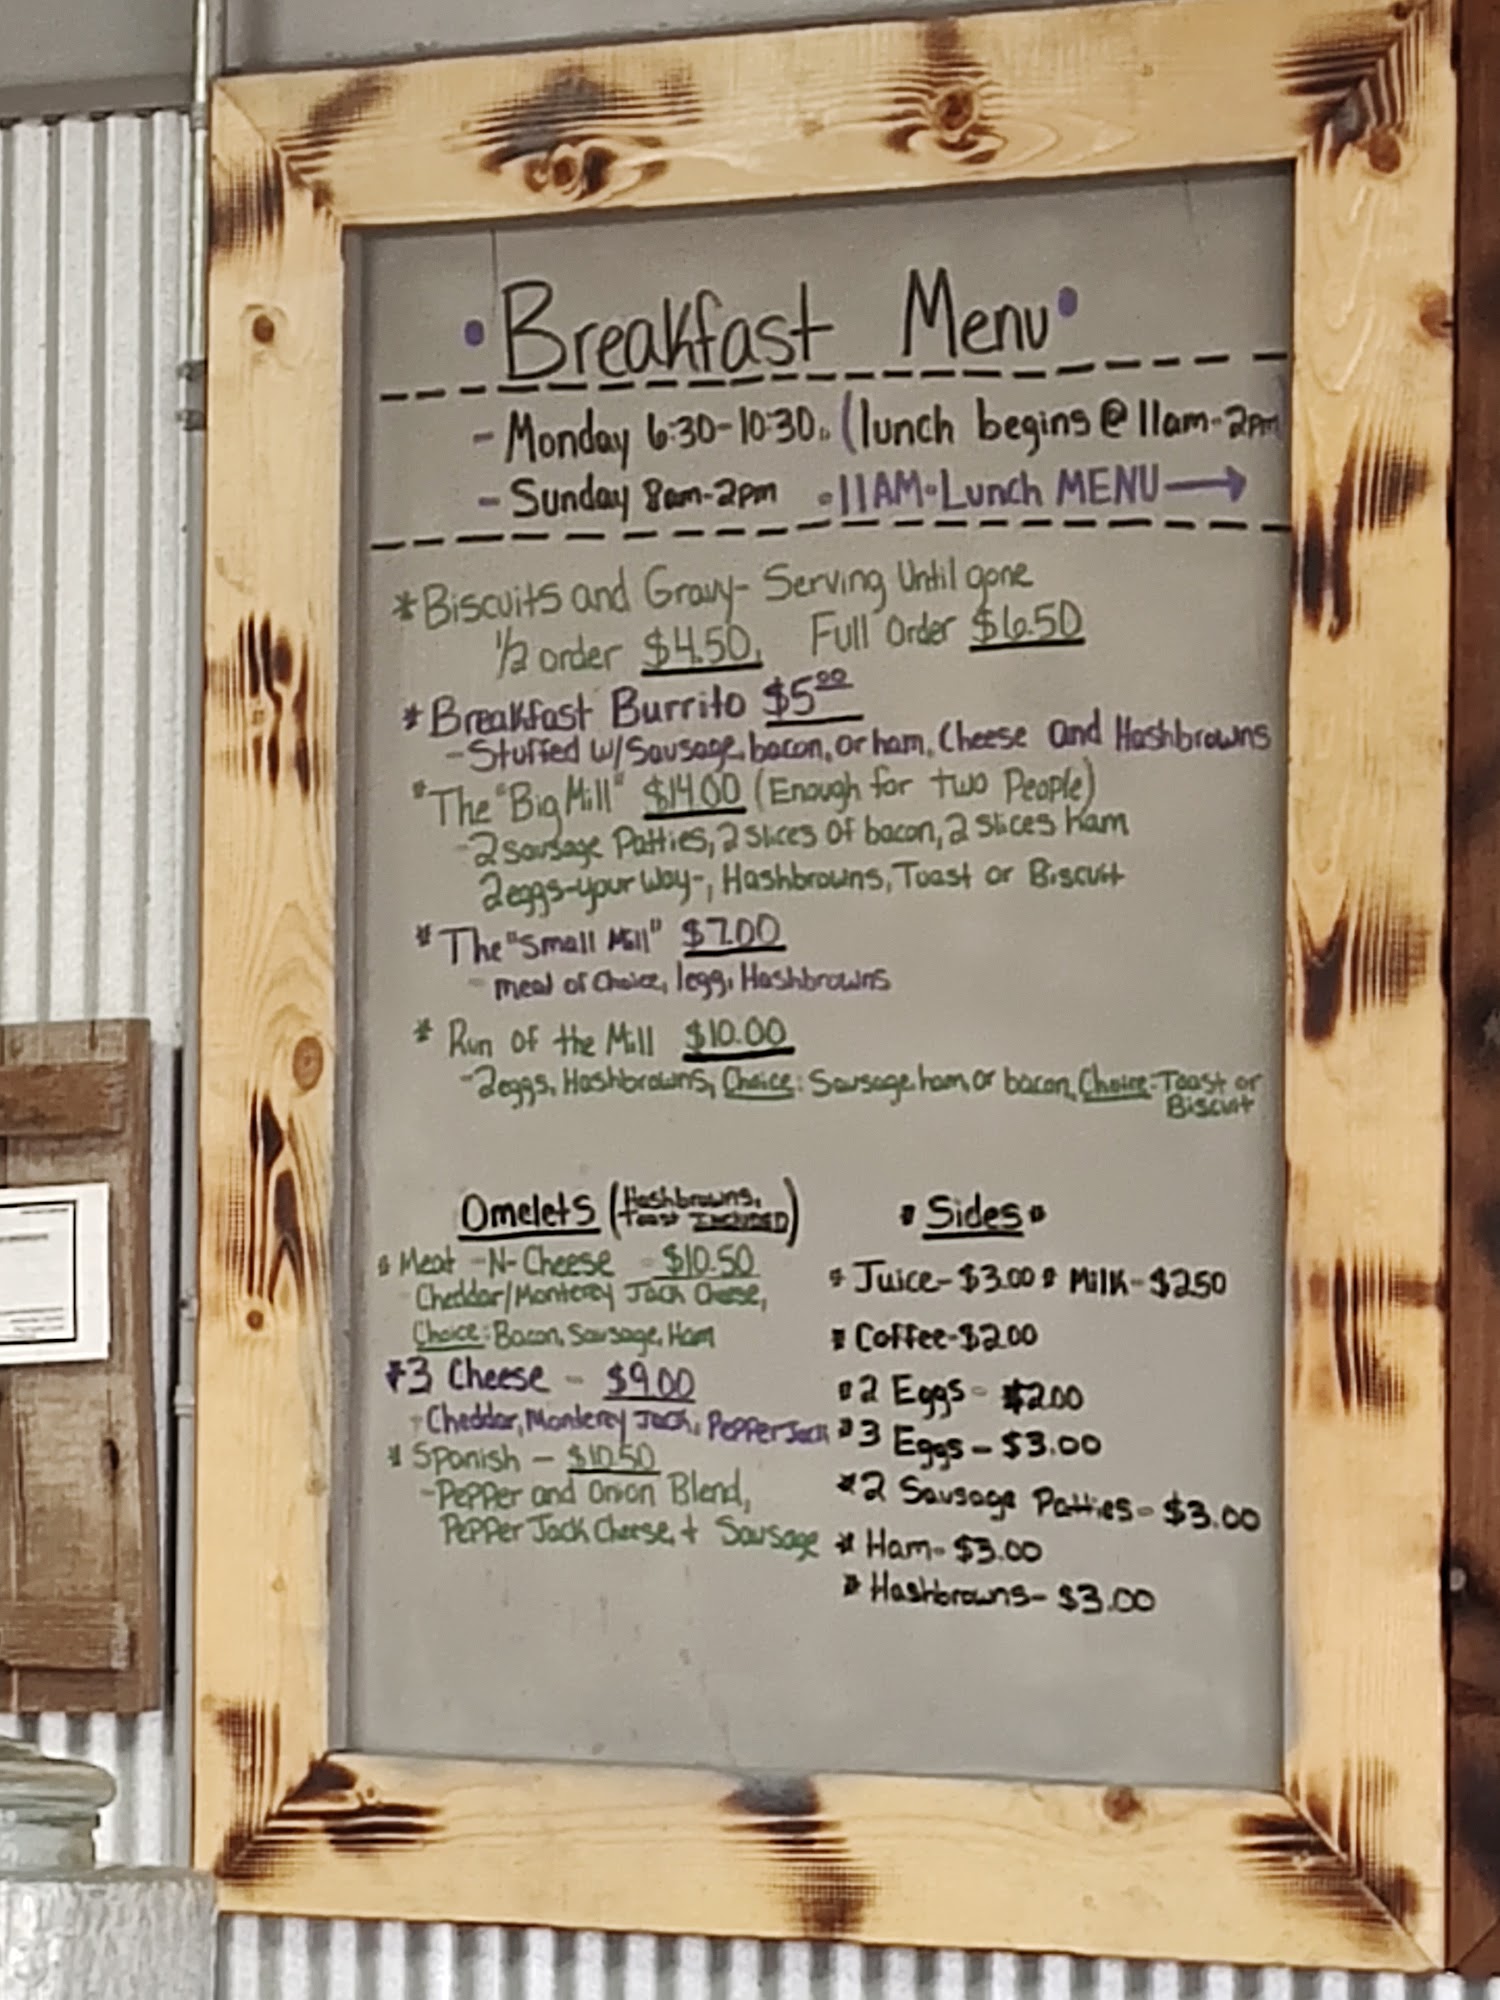 • Breakfast Menu •
- Monday 6:30-10:30. (lunch begins @ 11am-2pm
- Sunday 8am-2pm • 11AM • Lunch MENU →
* Biscuits and Gravy- Serving Until gone
1/2 order $4.50. Full Order $6.50
* Breakfast Burrito $5.00
- Stuffed w/Sausage, bacon, or ham, Cheese and Hashbrowns
* The "Big Mill" $14.00 (Enough for two People)
- 2 sausage Patties, 2 slices of bacon, 2 slices ham
2 eggs-your way-, Hashbrowns, Toast or Biscuit
* The "Small Mill" $7.00
- meat of Choice, 1 egg, Hashbrowns
* Run of the Mill $10.00
- 2 eggs, Hashbrowns, Choice: Sausage, ham, or bacon, Choice-Toast or
Biscuit
Omelets (Hashbrowns,
toast INCLUDED)
* Meat -N- Cheese - $10.50
Cheddar/Monterey Jack Cheese,
Choice: Bacon, Sausage, Ham
* 3 Cheese - $9.00
- Cheddar, Monterey Jack, Pepper Jack
* Spanish - $10.50
- Pepper and Onion Blend,
Pepper Jack Cheese, + Sausage
* Sides *
* Juice- $3.00 * Milk- $2.50
* Coffee- $2.00
* 2 Eggs- $2.00
* 3 Eggs- $3.00
* 2 Sausage Patties- $3.00
* Ham- $3.00
* Hashbrowns- $3.00